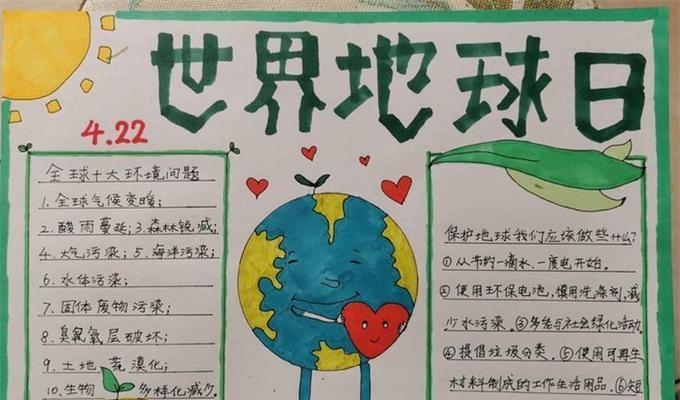 世界地球日
4.22
全球十大环境问题
1.全球气候变暖;
2.酸雨蔓延;3.森林锐减;
4.大气污染;5.海洋污染;
6.水体污染;
7.固体废物污染;
8.臭氧层破坏;
9.土地荒漠化;
10.生物多样化减少。
保护地球我们应该做些什么?
①从节约一滴水、一度电开始。
②使用环保电池,慎用洗涤剂,减
少水污染。③多参与社会绿化活动。
④提倡垃圾分类。⑤使用可再生
材料制成的工作生活用品。⑥短